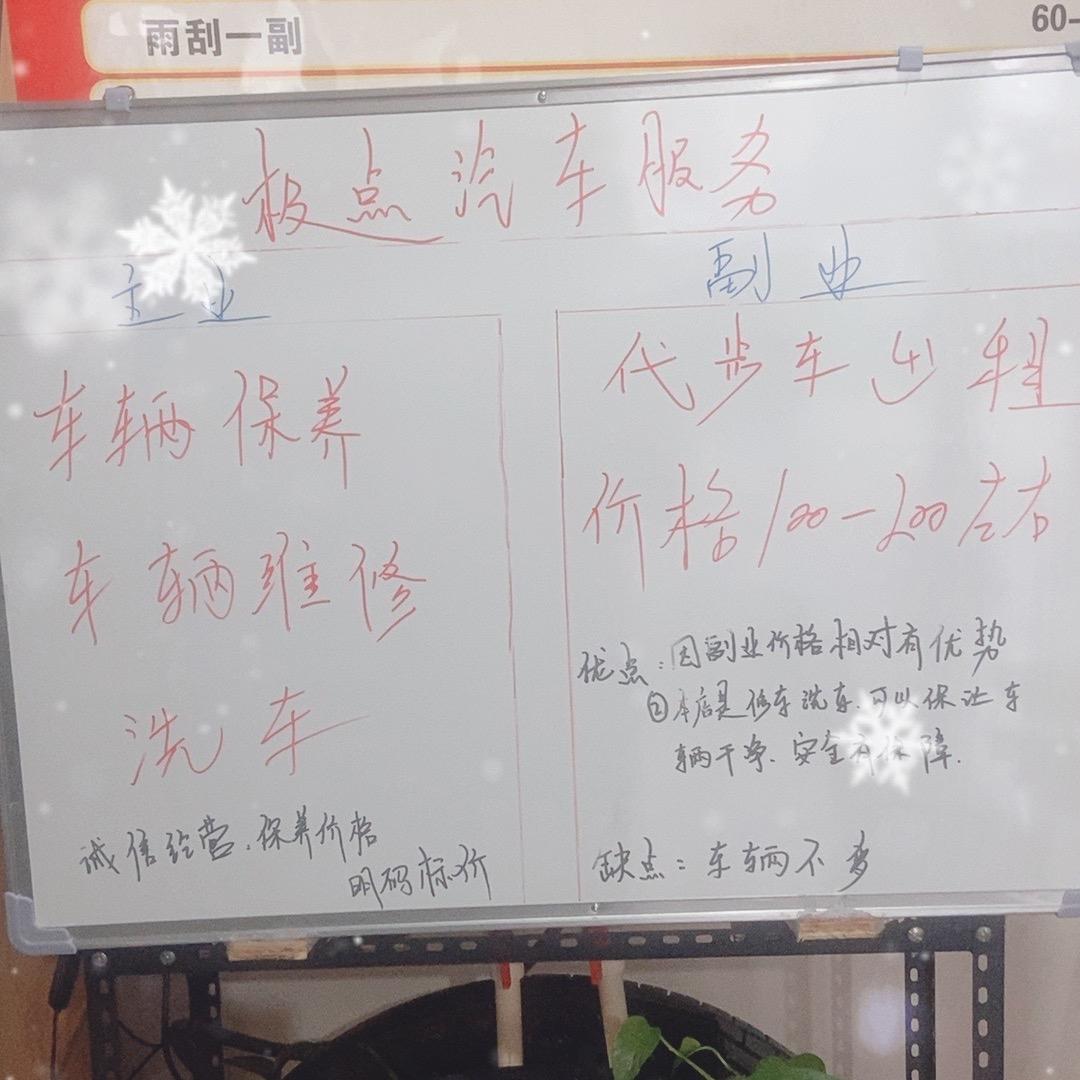 雨刮一副
60-
极点汽车服务
主业
车辆保养
车辆维修
洗车
诚信经营、保养价格
明码标价
副业
代步车出租
价格100-200左右
优点：因副业价格相对有优势
②本店是修车洗车、可以保证车
辆干净、安全有保障.
缺点：车辆不多